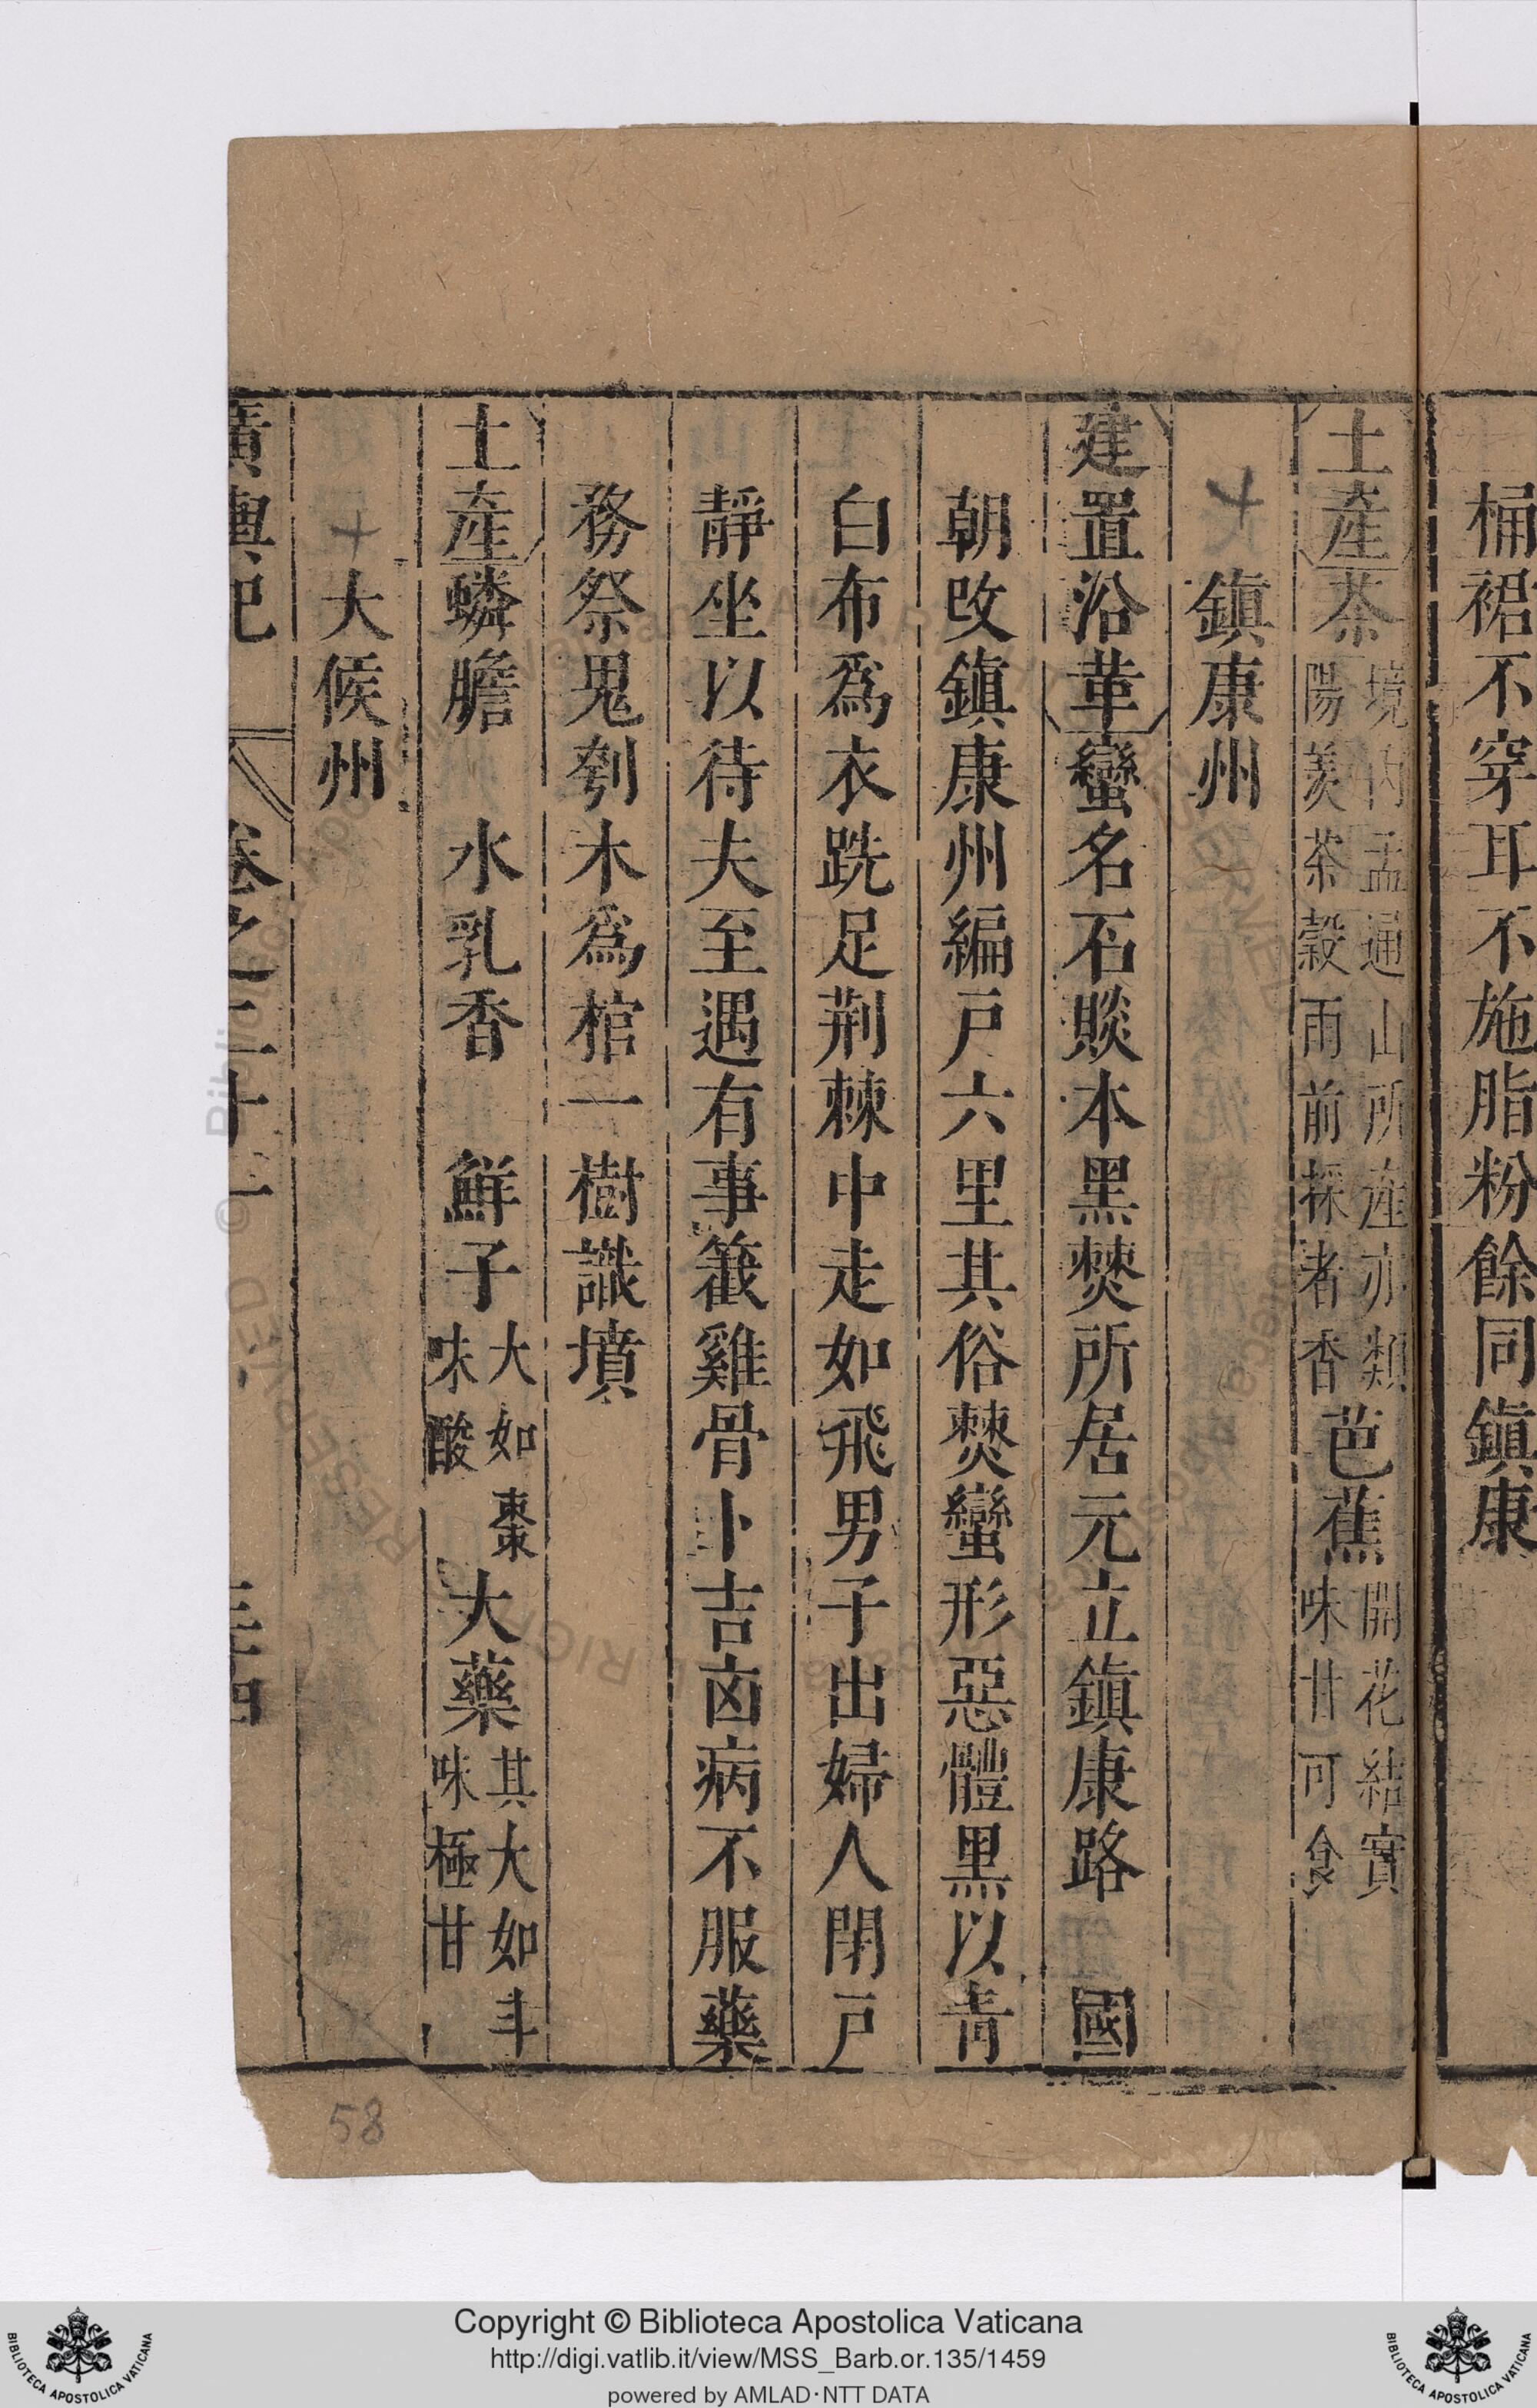 桶裙不穿耳不施脂粉餘同鎮康
土產茶境內孟通山所產亦類陽羨茶穀雨前採者香芭蕉開花結實味甘可食
鎮康州
建置沿革蠻名石賧本黑㷊所居元立鎮康路 國
朝改鎮康州編戶六里其俗㷊蠻形惡體黑以青
白布爲衣跣足荆棘中走如飛男子出婦人閉戶
靜坐以待夫至遇有事籖雞骨卜吉凶病不服藥
務祭鬼刳木爲棺一樹識墳
土產蟒膽 水乳香 鮮子大如棗味酸大藥其大如斗味極甘
大候州
廣輿記 卷之二十一 三十四
58
Copyright © Biblioteca Apostolica Vaticana
http://digi.vatlib.it/view/MSS_Barb.or.135/1459
powered by AMLAD·NTT DATA
BIBLIOTECA APOSTOLICA VATICANA
BIBLIOTECA APOSTOLICA VATICANA